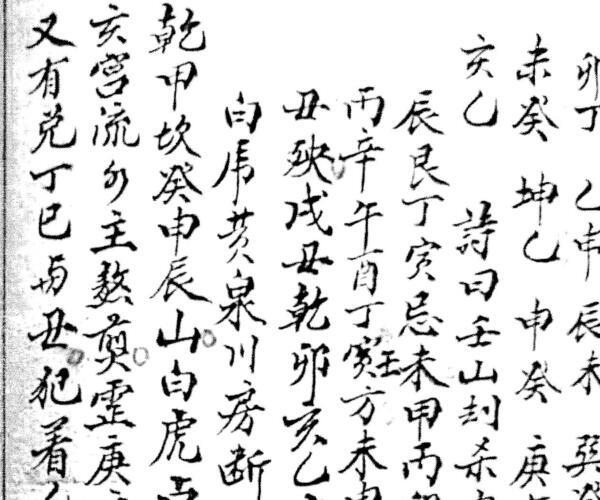 卯丁 乙申 辰未 巽癸
未癸 坤乙 申癸 庚
亥乙 詩曰壬山刦杀
辰艮丁寅忌未甲丙
丙辛午酉丁寅壬方未
丑殃戌丑乾卯亥乙
白虎黄泉川房断
乾甲坎癸申辰山白虎
亥宫流水主熬煎霊庚
又有兌丁巳与丑犯着